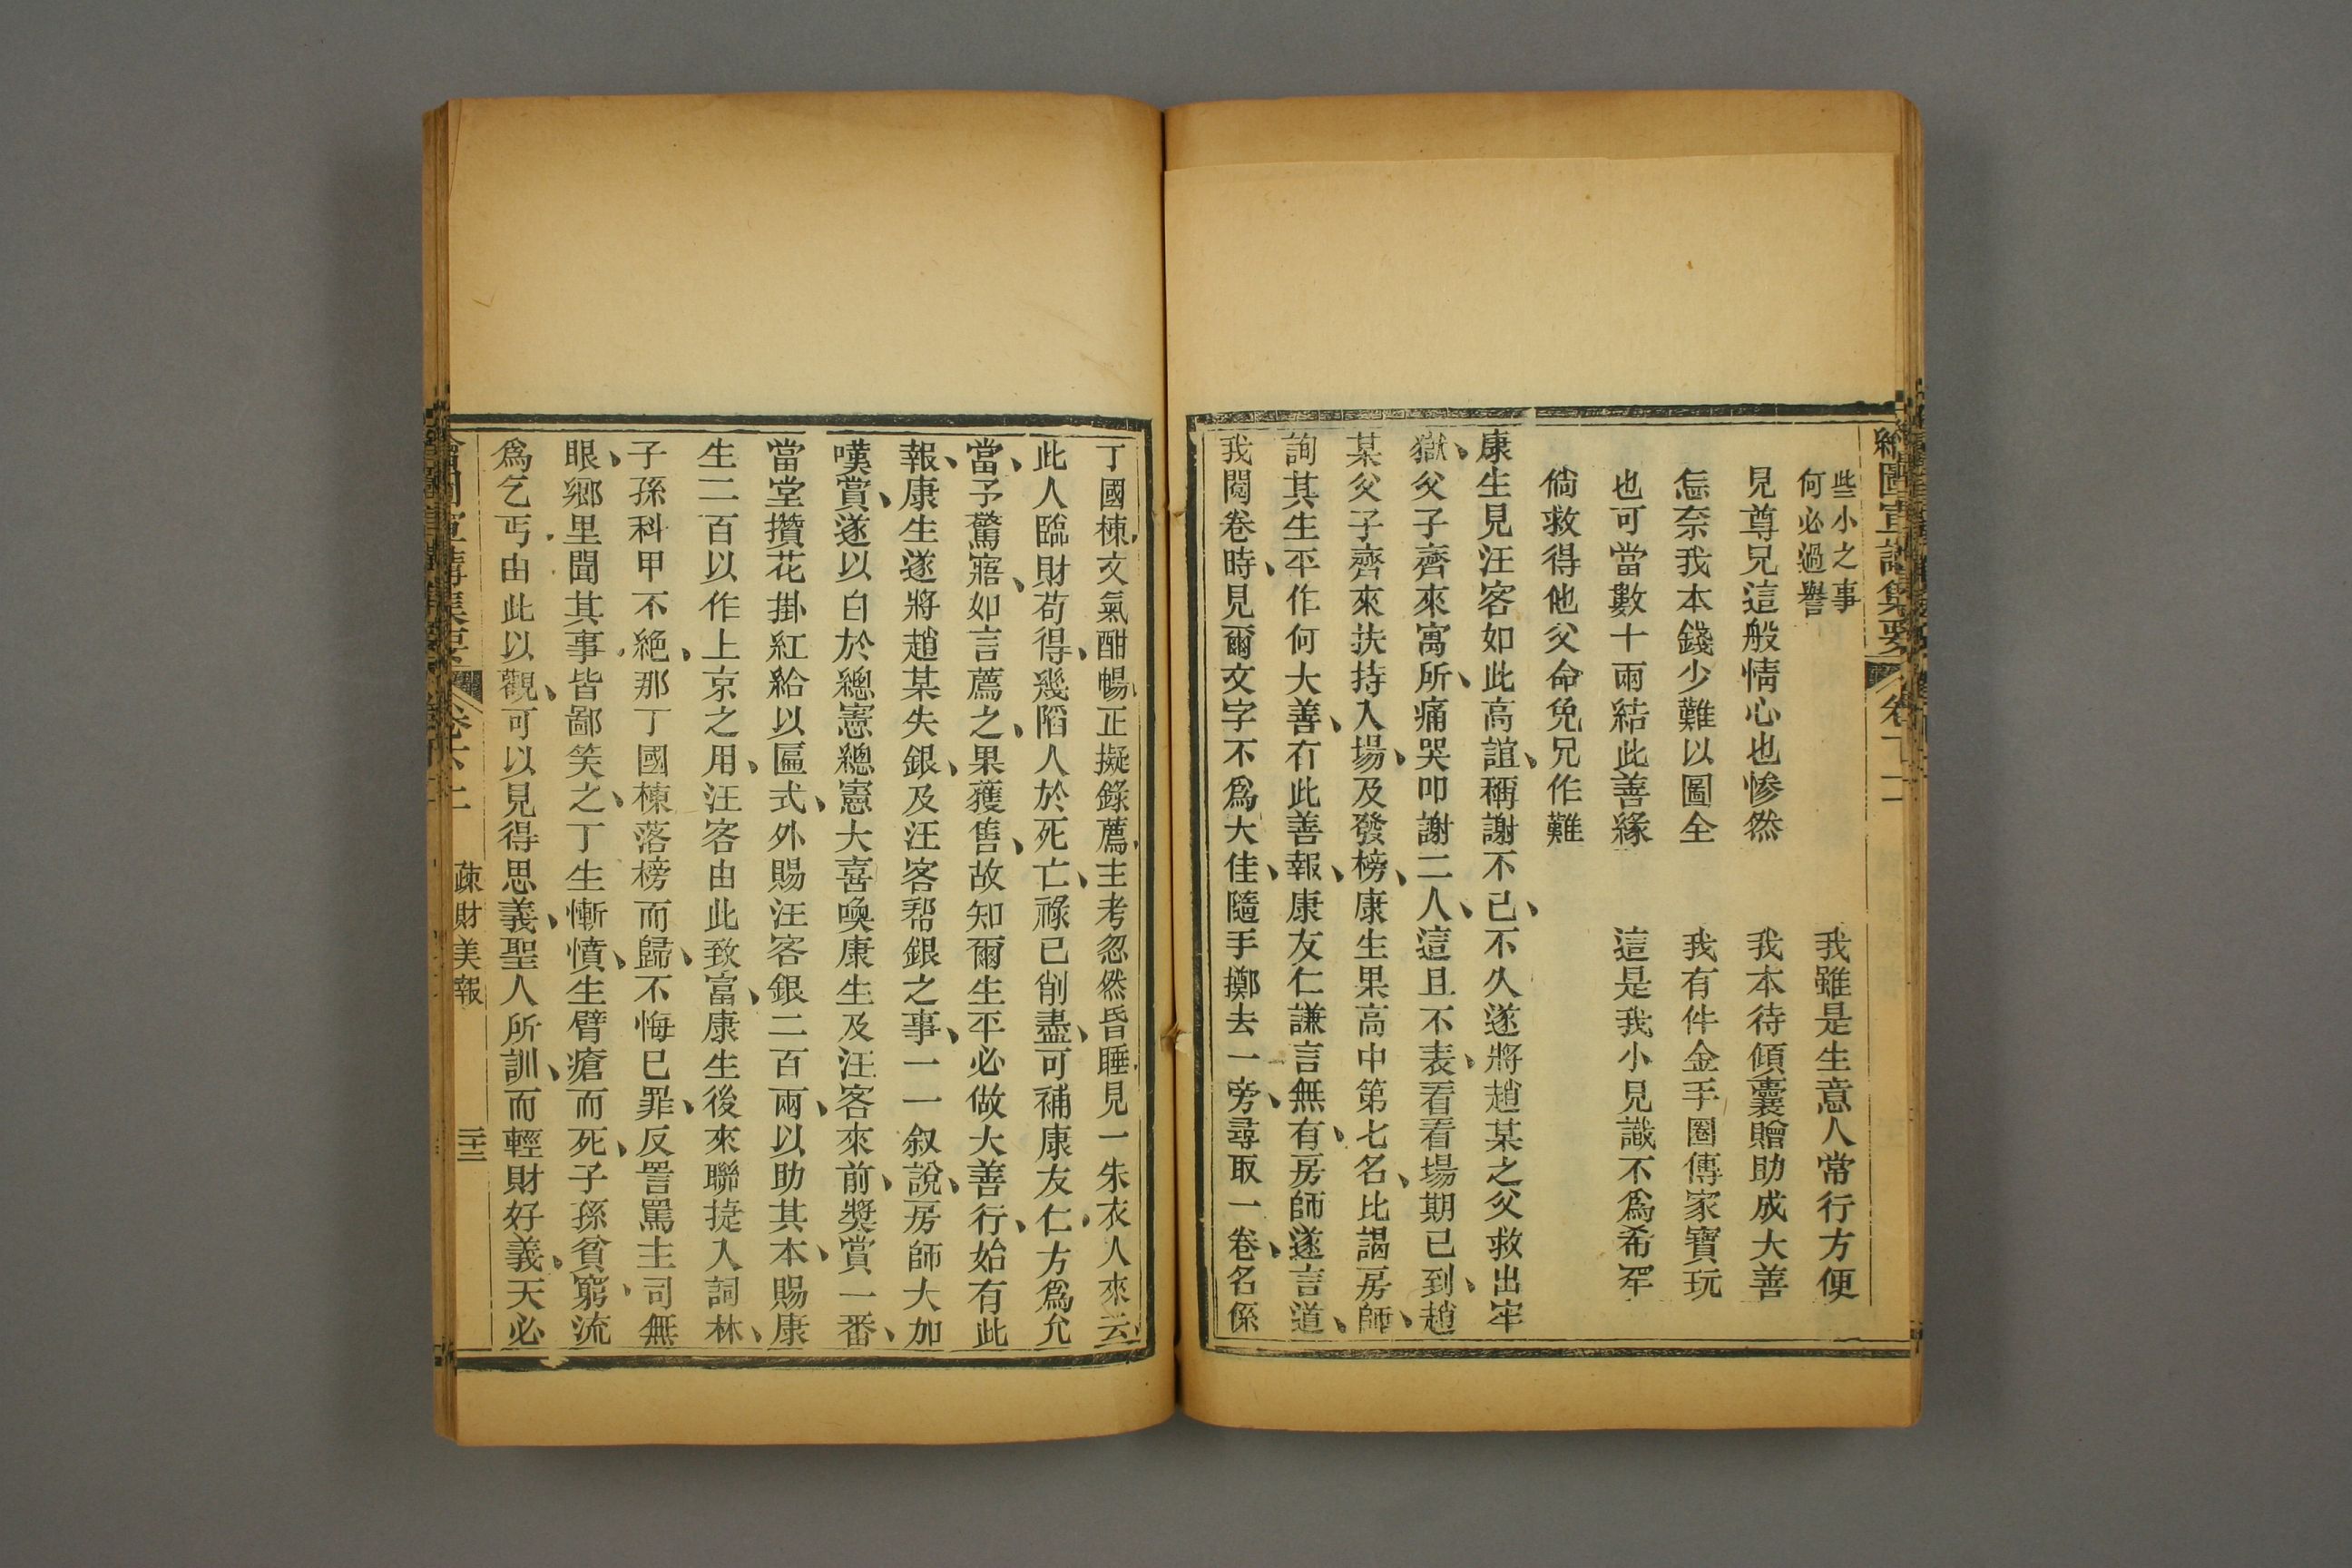 繪圖宣講集要
些小之事
何必過譽
我雖是生意人常行方便
見尊兄這般情心也慘然
我本待傾囊贈助成大善
怎奈我本錢少難以圖全
我有件金手圈傳家寶玩
也可當數十兩結此善緣
這是我小見識不為希罕
倘救得他父命免兄作難
康生見汪客如此高誼、稱謝不已、不久遂將趙某之父救出牢
獄、父子齊來寓所、痛哭叩謝二人、這且不表、看看場期已到、趙
某父子齊來扶持入場、及發榜、康生果高中第七名、比謁房師、
詢其生平作何大善、有此善報、康友仁謙言無有、房師遂言道、
我閱卷時、見爾文字不為大佳、隨手擲去一旁、尋取一卷、名係
丁國棟、文氣酣暢、正擬錄薦、主考忽然昏睡、見一朱衣人來云、
此人臨財苟得、幾陷人於死亡、祿已削盡、可補康友仁、方為允
當、予驚寤、如言薦之、果獲售、故知爾生平必做大善行、始有此
報、康生遂將趙某失銀、及汪客幫銀之事、一一叙說、房師大加
嘆賞、遂以白於總憲總憲大喜喚康生及汪客來前、獎賞一番、
當堂攢花掛紅給以匾式、外賜汪客銀二百兩、以助其本、賜康
生二百以作上京之用、汪客由此致富、康生後來聯捷入詞林、
子孫科甲不絕、那丁國棟落榜而歸、不悔已罪、反詈罵主司無
眼、鄉里聞其事、皆鄙笑之、丁生慚憤、生臂瘡而死、子孫貧窮、流
為乞丐、由此以觀、可以見得思義、聖人所訓、而輕財好義、天必
卷六二
疎財美報
三十三